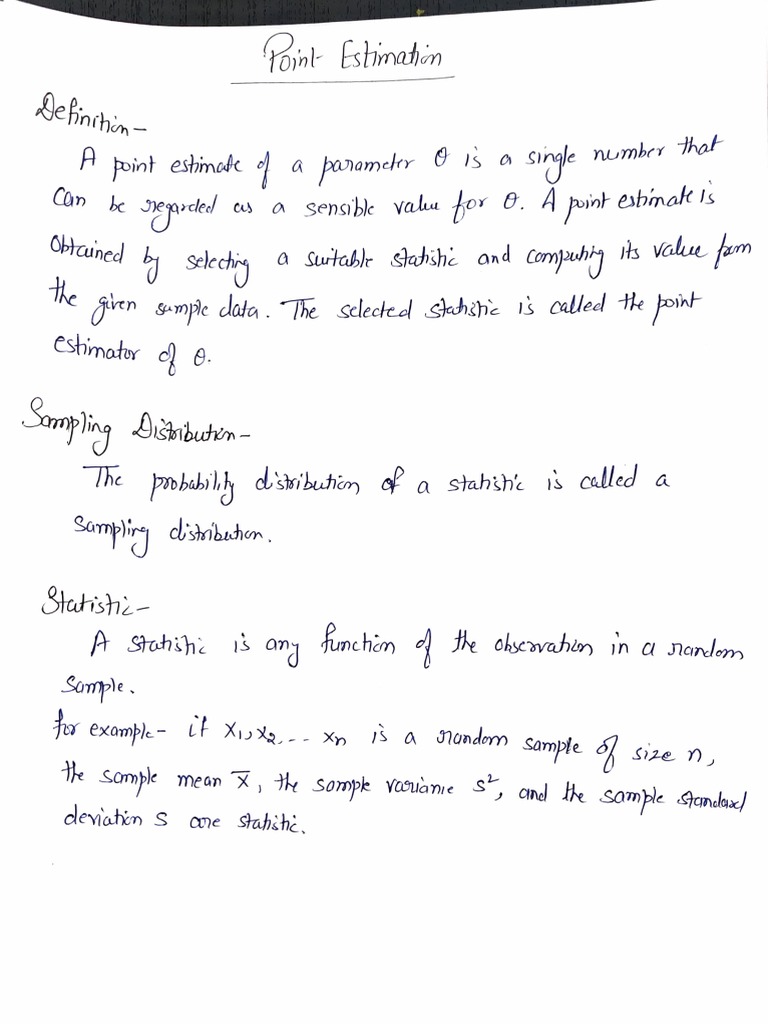 Point Estimation
Definition-
A point estimate of a parameter θ is a single number that
can be regarded as a sensible value for θ. A point estimate is
obtained by selecting a suitable statistic and computing its value from
the given sample data. The selected statistic is called the point
estimator of θ.
Sampling Distribution-
The probability distribution of a statistic is called a
sampling distribution.
Statistic-
A statistic is any function of the observation in a random
sample.
for example- if x₁, x₂ ... xn is a random sample of size n,
the sample mean x̄, the sample variance s², and the sample standard
deviation s are statistic.